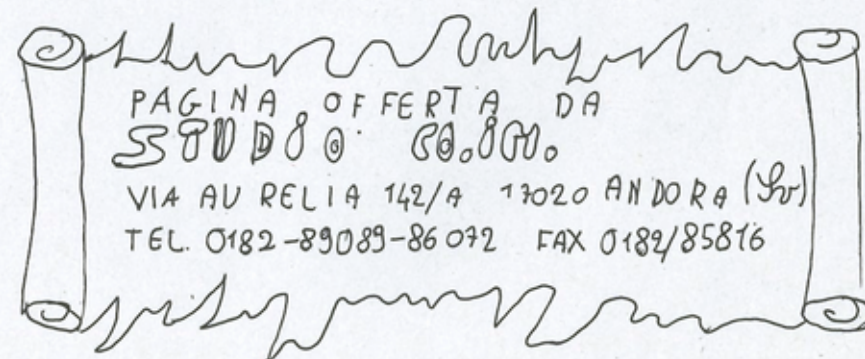 PAGINA OFFERTA DA
STUDIO CO.IM.
VIA AURELIA 142/A 17020 ANDORA (Sv)
TEL. 0182-89089-86072 FAX 0182/85816